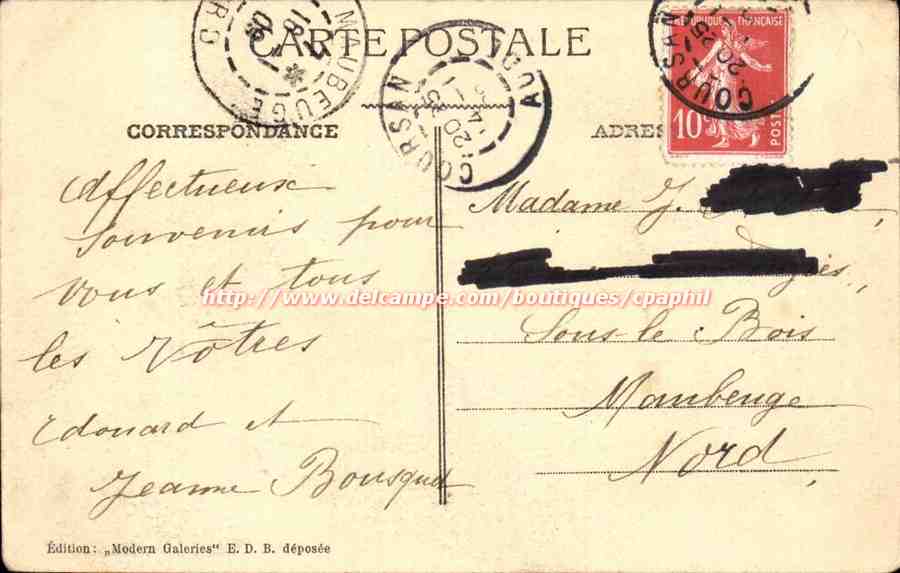 CARTE POSTALE
CORRESPONDANCE
Affectueux
Souvenirs pour
vous et tous
les vôtres
Edouard et
Jeanne Bousquet
Édition: „Modern Galeries" E. D. B. déposée
MAUBEUGE
NORD
COURSAN
AUDE
ADRES
RÉPUBLIQUE FRANÇAISE
10c
POSTES
COURSAN
Madame J.
Sous-le-Bois
Maubeuge
Nord
http://www.delcampe.com/boutiques/cpaphil